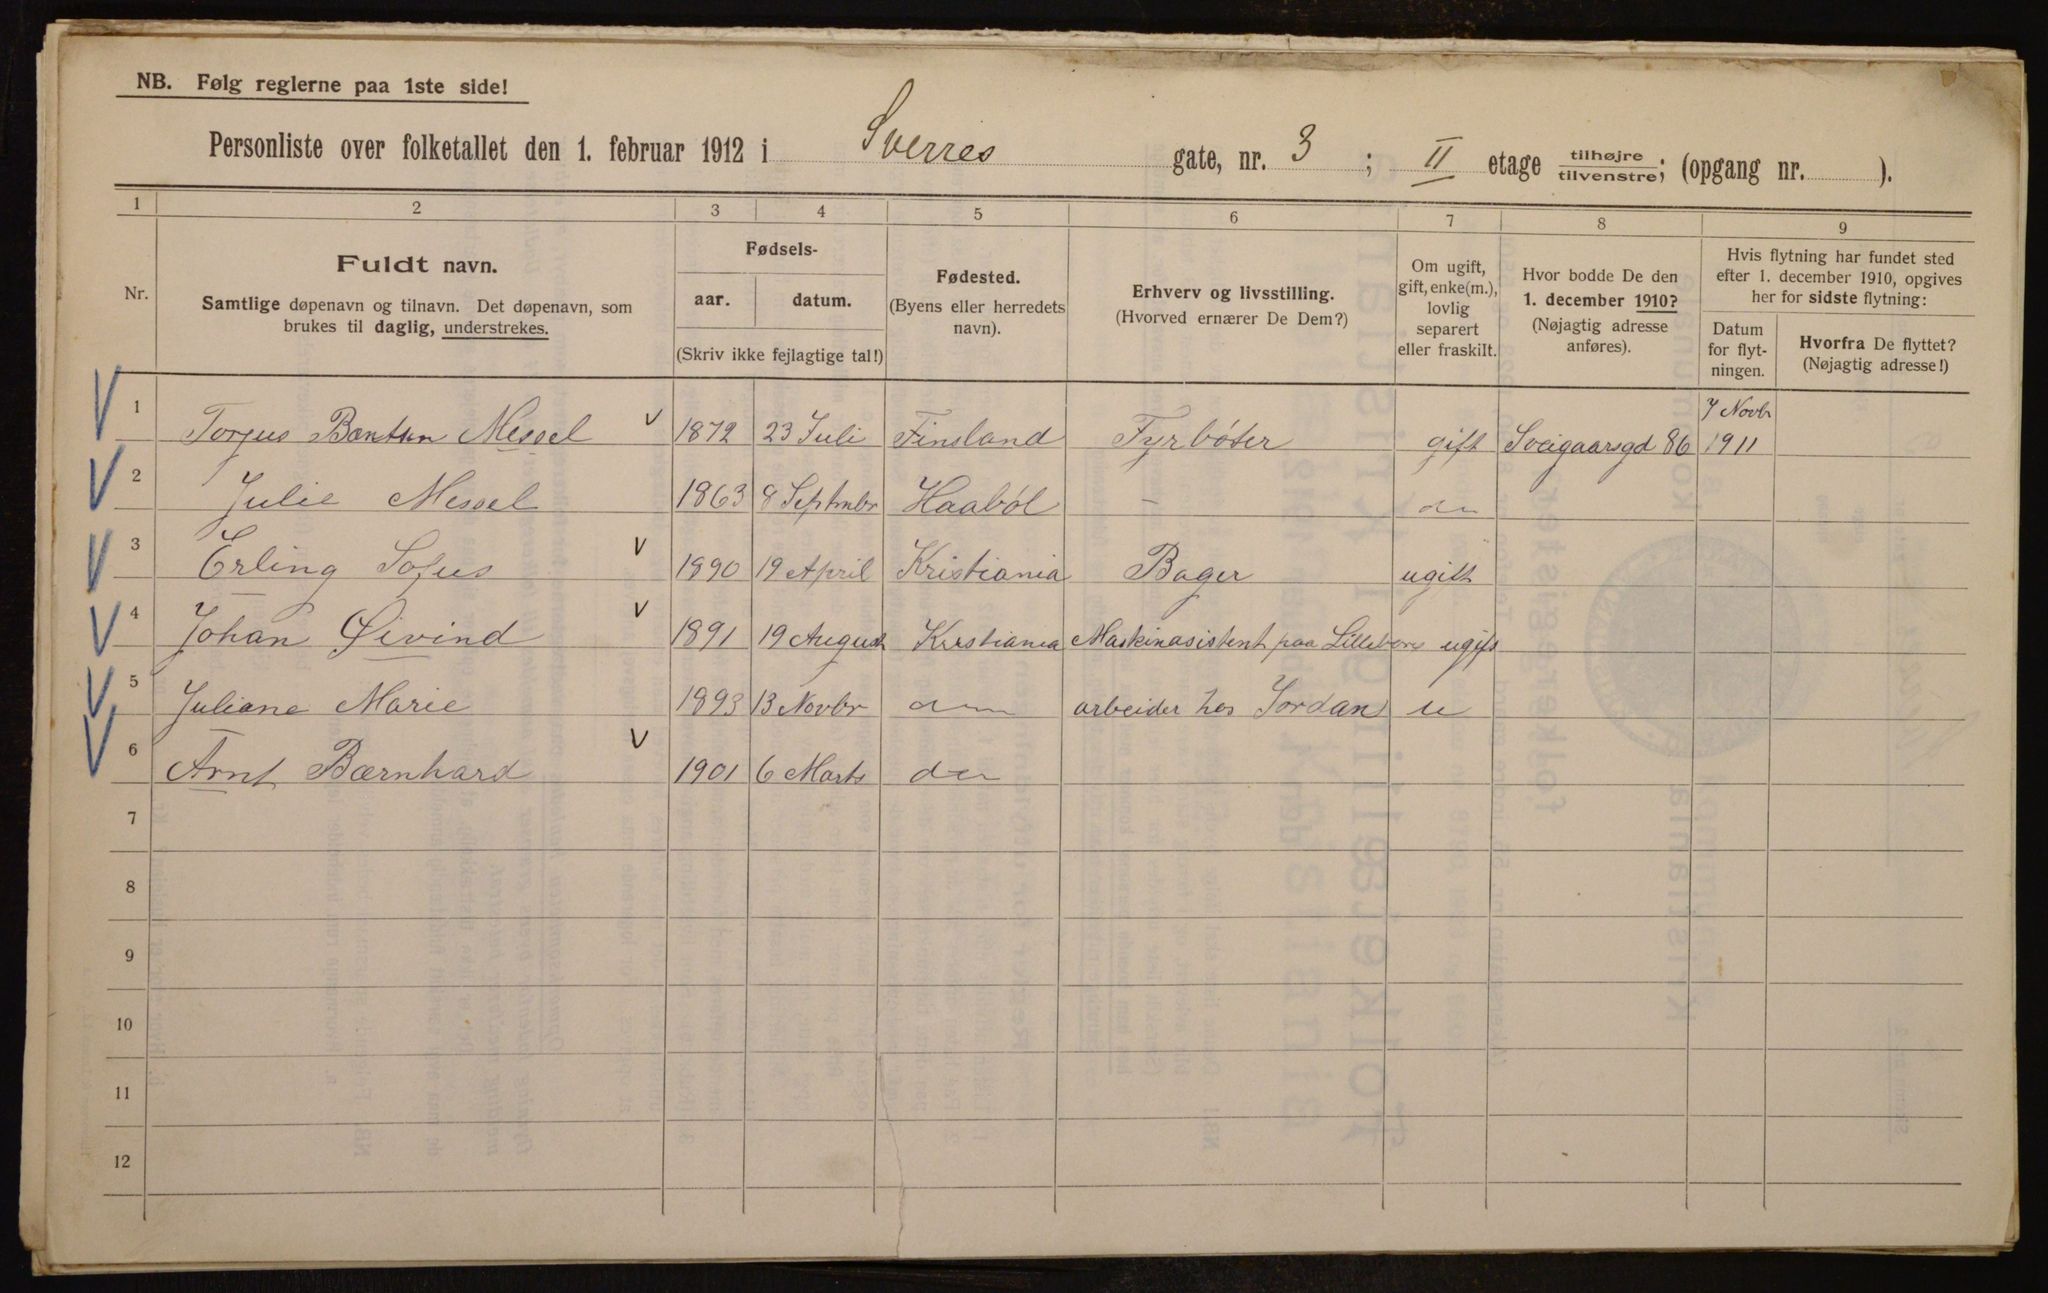 NB. Følg reglerne paa 1ste side!
Personliste over folketallet den 1. februar 1912 i Sverres gate, nr. 3; II etage tilhøjre/tilvenstre; (opgang nr. ).
1 2 3 4 5 6 7 8 9
Nr.
Fuldt navn.
Samtlige døpenavn og tilnavn. Det døpenavn, som
brukes til daglig, understrekes.
Fødsels-
aar. datum.
(Skriv ikke fejlagtige tal!)
Fødested.
(Byens eller herredets
navn).
Erhverv og livsstilling.
(Hvorved ernærer De Dem?)
Om ugift,
gift, enke(m.),
lovlig
separert
eller fraskilt.
Hvor bodde De den
1. december 1910?
(Nøjagtig adresse
anføres).
Hvis flytning har fundet sted
efter 1. december 1910, opgives
her for sidste flytning:
Datum
for flyt-
ningen.
Hvorfra De flyttet?
(Nøjagtig adresse!)
1 Torjus Messel 1872 23 Juli Finsland Fyrbøter gift Sveigaarsgd 86 7 Novbr 1911
2 Julie Messel 1863 8 Septmbr Haabøl - do
3 Erling Sofus 1890 19 April Kristiania Bager ugift
4 Johan Øivind 1891 19 August Kristiania Maskinasistent paa Lilleborg ugift
5 Juliane Marie 1893 13 Novbr arbeider hos Jordan u
6 Arnt Bærnhard 1901 6 Marts do
7
8
9
10
11
12